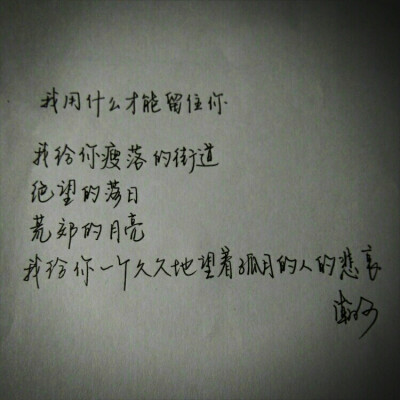 我用什么才能留住你
我给你瘦落的街道
绝望的落日
荒郊的月亮
我给你一个久久地望着孤月的人的悲哀